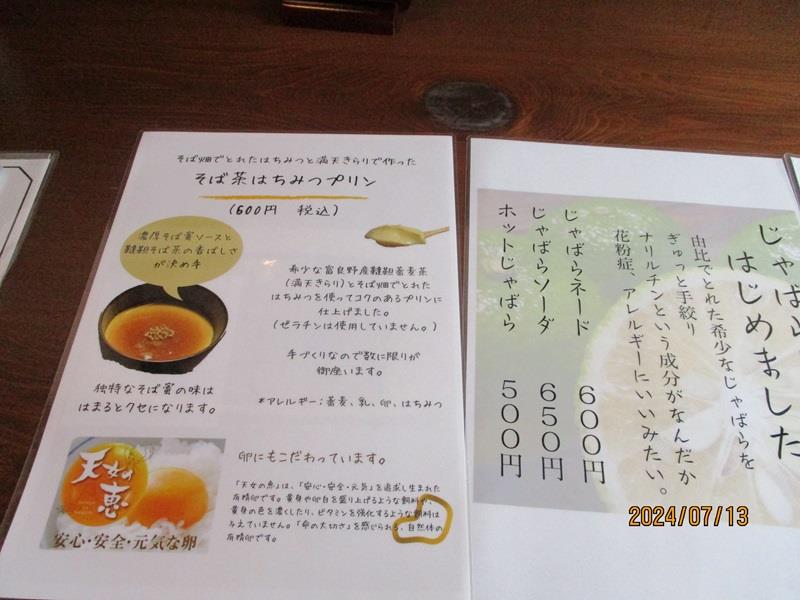 そば畑でとれたはちみつと満天きらりで作った
そば茶はちみつプリン
(600円 税込)
濃厚そば蜜ソースと
韃靼そば茶の香ばしさ
が決め手
希少な富良野産韃靼蕎麦茶
(満天きらり)とそば畑でとれた
はちみつを使ってコクのあるプリンに
仕上げました。
(ゼラチンは使用していません。)
手づくりなので数に限りが
御座います。
独特なそば蜜の味は
はまるとクセになります。
*アレルギー:蕎麦、乳、卵、はちみつ
天女の恵
安心・安全・元気な卵
卵にもこだわっています。
「天女の恵」は、「安心・安全・元気」を追求し生まれた
有精卵です。黄身や卵白を盛り上げるような飼料や、
黄身の色を濃くしたり、ビタミンを強化するような飼料は
与えていません。「命の大切さ」を感じられる、自然体の
有精卵です。
じゃばら
はじめました
由比でとれた希少なじゃばらを
ぎゅっと手絞り
ナリルチンという成分がなんだか
花粉症、アレルギーにいいみたい。
じゃばらネード 600円
じゃばらソーダ 650円
ホットじゃばら 500円
2024/07/13